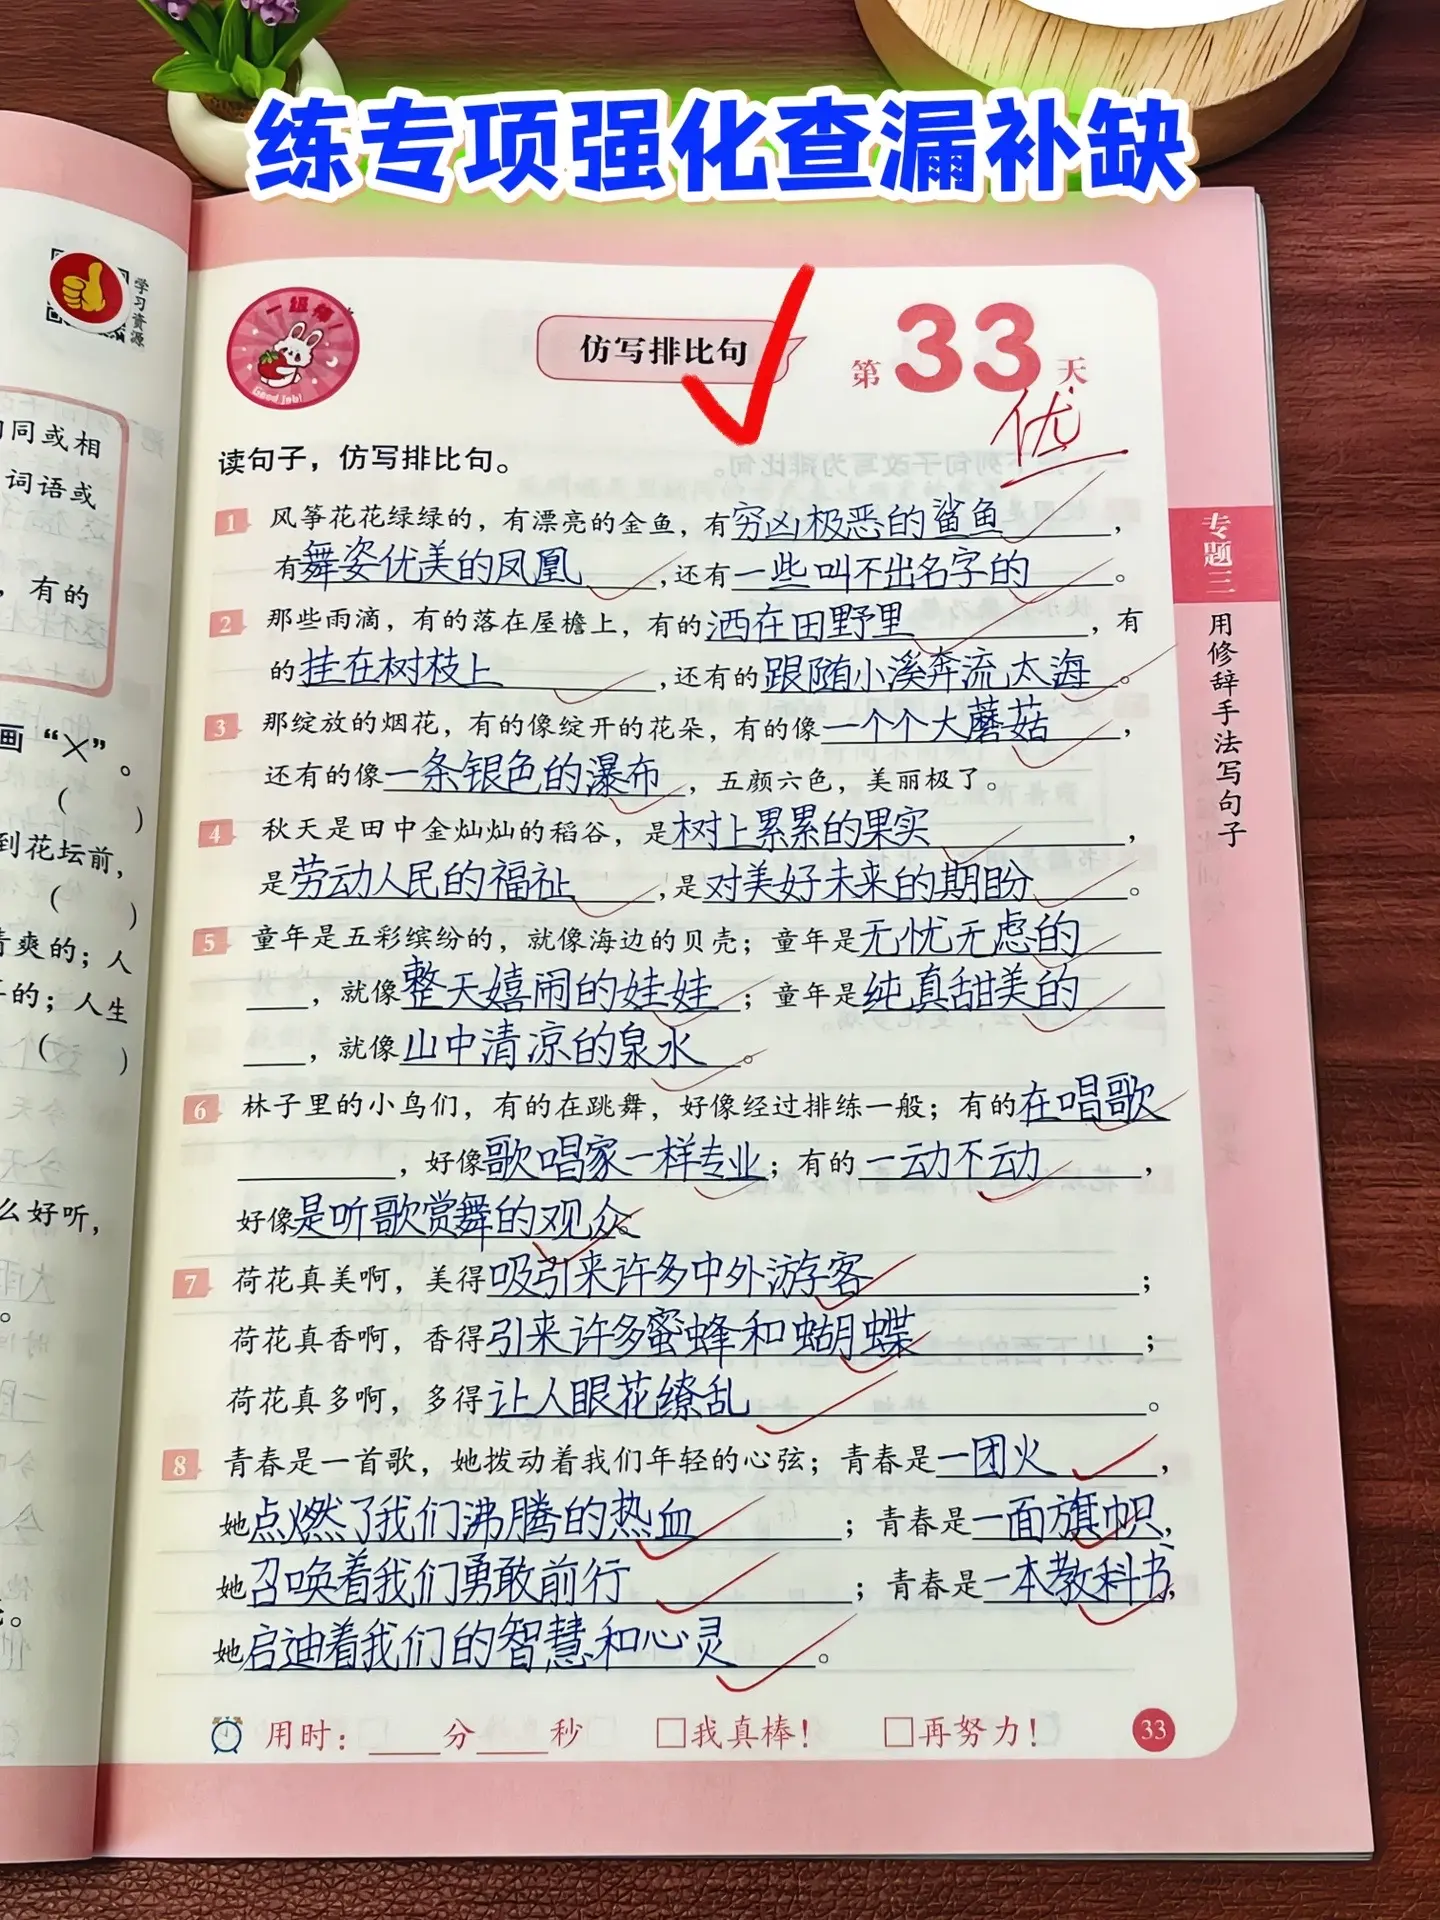 练专项强化查漏补缺
学习资源
一级棒!
Good Job!
仿写排比句
第33天
优
同或相
词语或
,有的
画“×”。
( )
到花坛前,
( )
清爽的;人
的;人生
( )
么好听,
。
读句子,仿写排比句。
1 风筝花花绿绿的,有漂亮的金鱼,有穷凶极恶的鲨鱼,
有舞姿优美的凤凰,还有一些叫不出名字的。
2 那些雨滴,有的落在屋檐上,有的洒在田野里,有
的挂在树枝上,还有的跟随小溪奔流大海。
3 那绽放的烟花,有的像绽开的花朵,有的像一个个大蘑菇,
还有的像一条银色的瀑布,五颜六色,美丽极了。
4 秋天是田中金灿灿的稻谷,是树上累累的果实,
是劳动人民的福祉,是对美好未来的期盼。
5 童年是五彩缤纷的,就像海边的贝壳;童年是无忧无虑的
,就像整天嬉闹的娃娃;童年是纯真甜美的
,就像山中清凉的泉水。
6 林子里的小鸟们,有的在跳舞,好像经过排练一般;有的在唱歌
,好像歌唱家一样专业;有的一动不动,
好像是听歌赏舞的观众。
7 荷花真美啊,美得吸引来许多中外游客;
荷花真香啊,香得引来许多蜜蜂和蝴蝶;
荷花真多啊,多得让人眼花缭乱。
8 青春是一首歌,她拨动着我们年轻的心弦;青春是一团火,
她点燃了我们沸腾的热血;青春是一面旗帜,
她召唤着我们勇敢前行;青春是一本教科书,
她启迪着我们的智慧和心灵。
用时:____分____秒 □我真棒! □再努力!
33
专题三 用修辞手法写句子